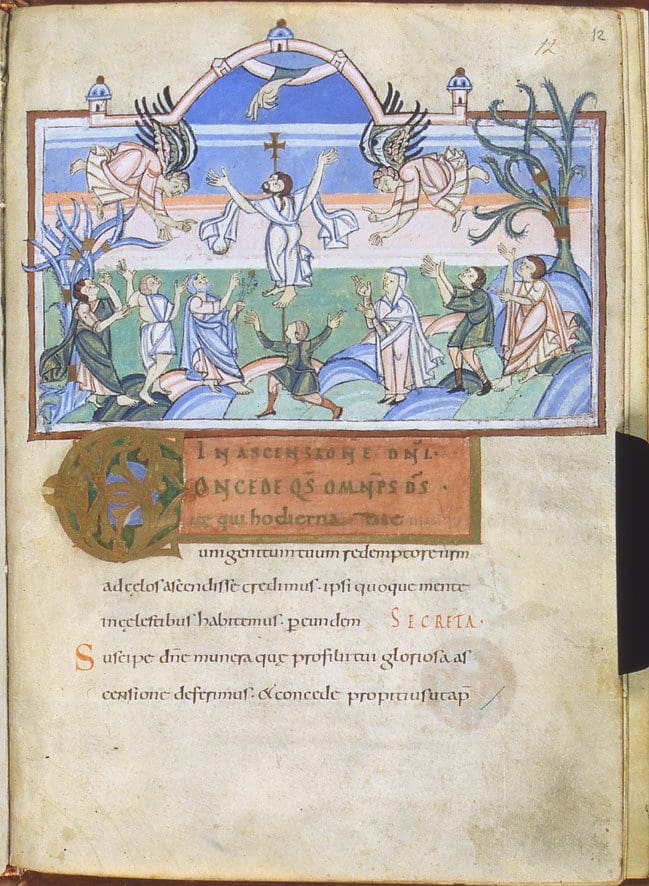 12
12
IN ASCENSIONE DNI.
CONCEDE QS OMNPS DS.
ut qui hodierna die
unigenitum tuum redemptorem nrm
ad cęlos ascendisse credimus. ipsi quoque mente
in cęlestibus habitemus. p eundem SECRETA.
Suscipe dne munera quę pro filii tui gloriosa as
censione deferimus. & concede propitius ut a p